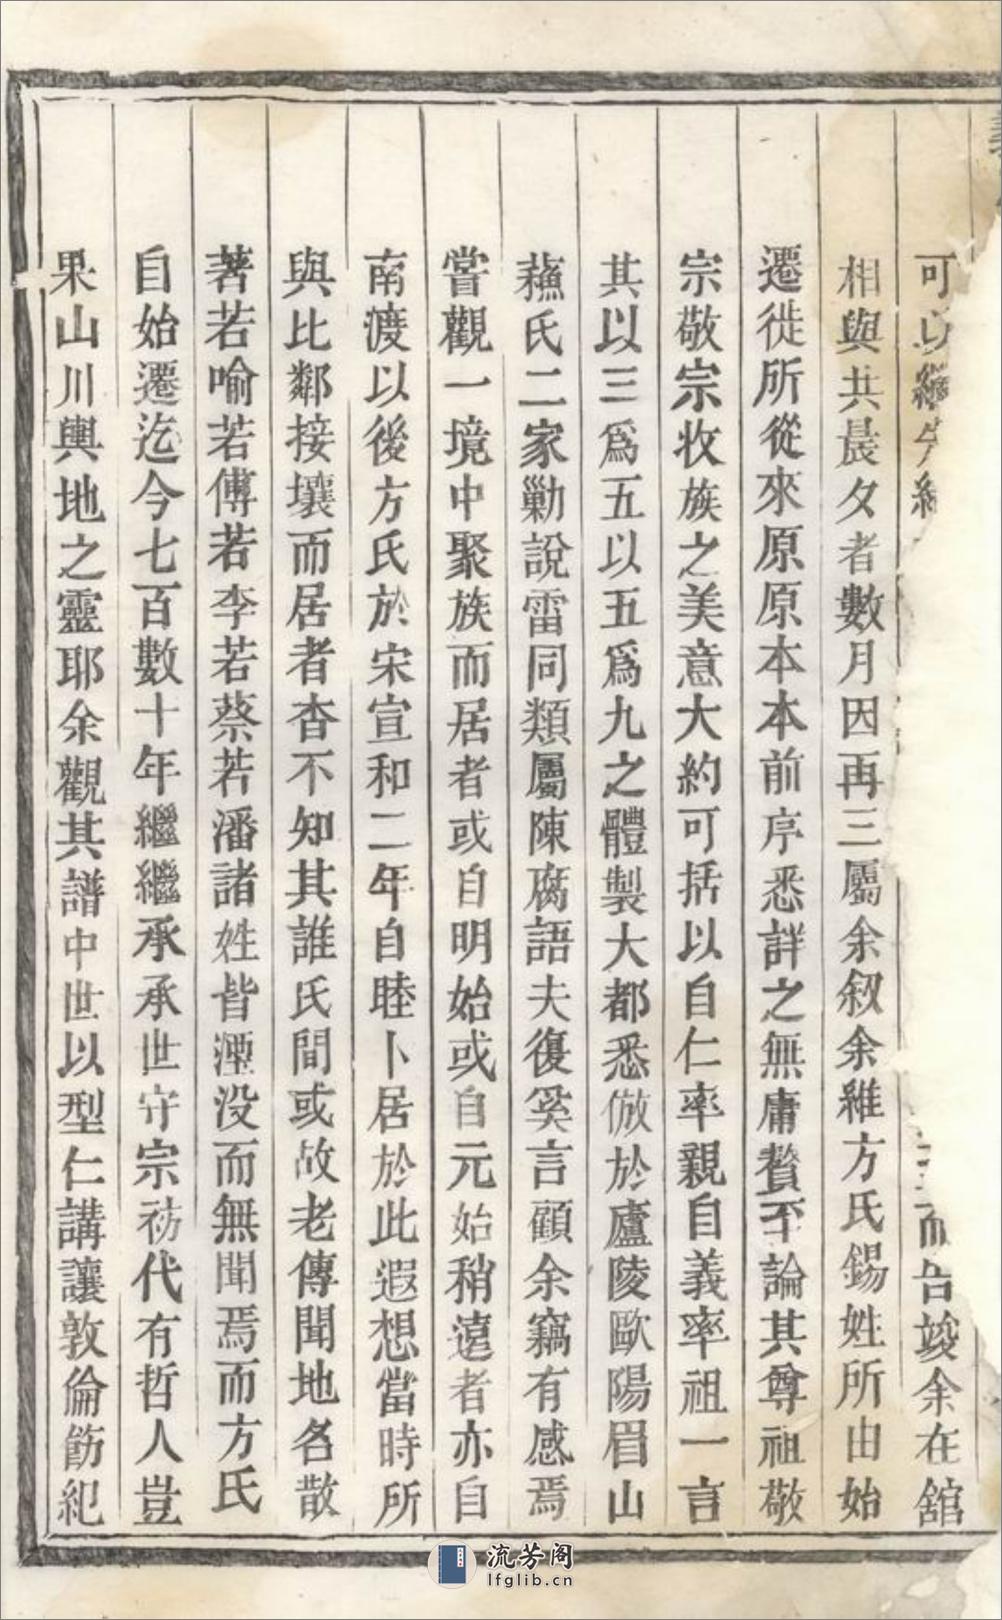 可以繼先緒
而告竣余在舘
相與共晨夕者數月因再三屬余叙余維方氏錫姓所由始
遷徙所從來原原本本前序悉詳之無庸贅至論其尊祖敬
宗敬宗收族之美意大約可括以自仁率親自義率祖一言
其以三爲五以五爲九之體製大都悉倣於廬陵歐陽眉山
蘓氏二家勦說雷同類屬陳腐語夫復奚言顧余竊有感焉
嘗觀一境中聚族而居者或自明始或自元始稍遠者亦自
南渡以後方氏於宋宣和二年自睦卜居於此遐想當時所
與比鄰接壤而居者杳不知其誰氏間或故老傳聞地名散
著若喻若傅若李若蔡若潘諸姓皆湮没而無聞焉而方氏
自始遷迄今七百數十年繼繼承承世守宗祊代有哲人豈
果山川輿地之靈耶余觀其譜中世以型仁講讓敦倫飭紀
流芳阁
lfglib.cn